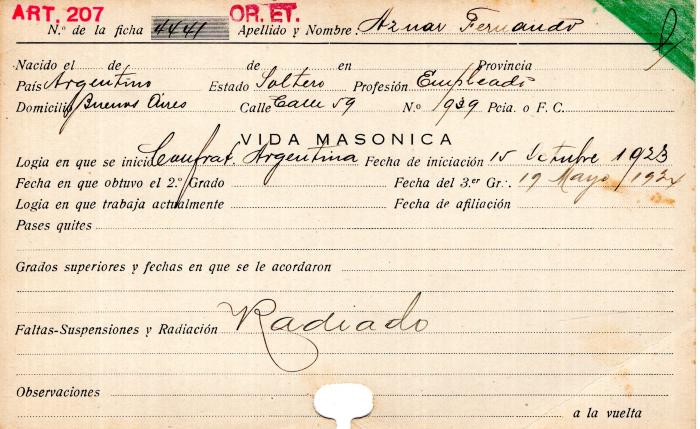 ART. 207 OR. ET.
N.º de la ficha 4441 Apellido y Nombre: Aznar Fernando
Nacido el de de en Provincia
País Argentino Estado Soltero Profesión Empleado
Domicilio Buenos Aires Calle Calle 59 N.º 939 Pcia. o F. C.
VIDA MASONICA
Logia en que se inició Confrat. Argentina Fecha de iniciación 15 Octubre 1923
Fecha en que obtuvo el 2.º Grado Fecha del 3.er Gr.·. 19 Mayo/1924
Logia en que trabaja actualmente Fecha de afiliación
Pases quites
Grados superiores y fechas en que se le acordaron
Faltas-Suspensiones y Radiación Radiado
Observaciones
a la vuelta